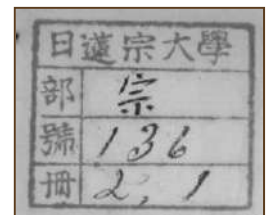 日蓮宗大學
部 宗
號 136
冊 2, 1